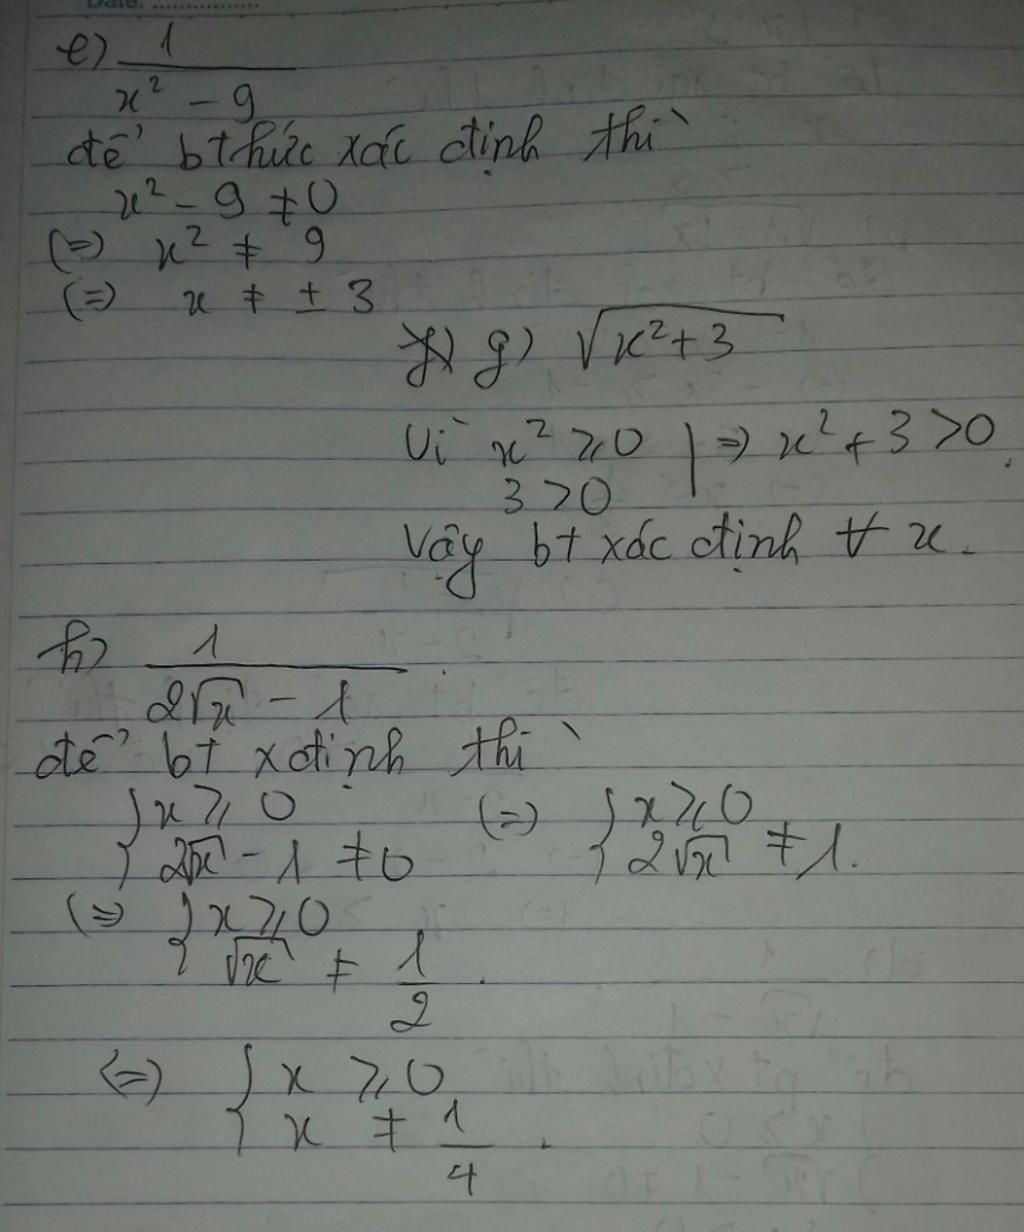 Date: ..................
e) 1/(x² - 9)
để bthức xác định thì
x² - 9 ≠ 0
(=) x² ≠ 9
(=) x ≠ ± 3
g) √(x²+3)
Vì x² ⩾ 0 | => x² + 3 > 0.
3 > 0
Vậy bt xác định ∀ x.
h) 1/(2√x - 1)
để bt xđịnh thì
{ x ⩾ 0 (=) { x ⩾ 0
2√x - 1 ≠ 0 2√x ≠ 1.
(=) { x ⩾ 0
√x ≠ 1/2.
(=) { x ⩾ 0
x ≠ 1/4.